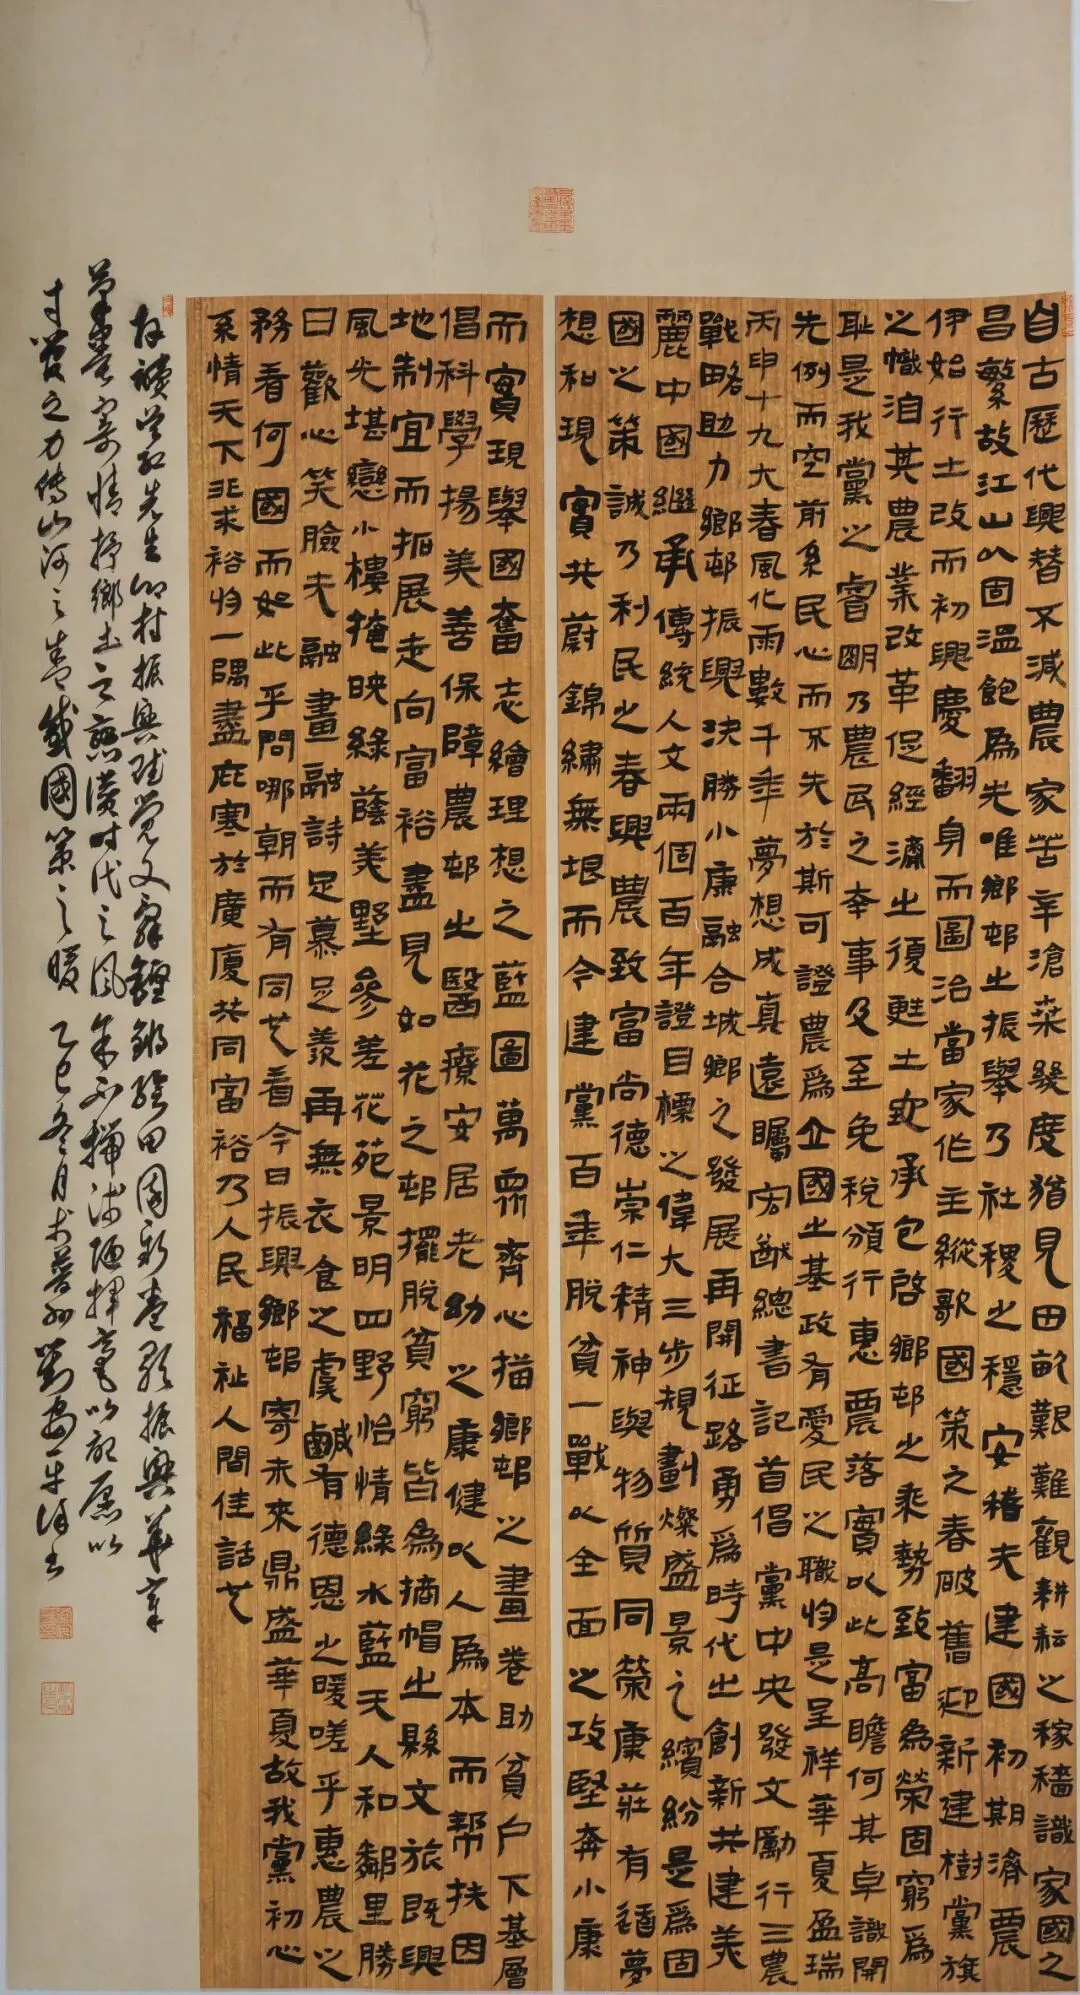 自古歷代興替不減農家苦辛滄桑幾度猶見田畝艱難觀耕耘之稼穡識家國之
昌繁故江山以固溫飽爲先唯鄉邨之振舉乃社稷之穩安稽夫建國初期濟農
伊始行土改而初興慶翻身而圖治當家作主縱歌國策之春破舊迎新建樹黨旗
之幟洎其農業改革促經濟之復甦土地承包啓鄉邨之乘勢致富為榮固窮爲
恥是我黨之睿明乃農民之幸事及至免稅頒行惠農落實以此高瞻何其卓識開
先例而空前系民心而不先於斯可證農爲立國之基政有愛民之職均是呈祥華夏盈瑞
丙申十九大春風化雨數千年夢想成真遠矚宏猷總書記首倡黨中央發文勵行三農
戰略助力鄉邨振興決勝小康融合城鄉之發展再開征路勇爲時代之創新共建美
麗中國繼承傳統人文兩個百年證目標之偉大三步規劃燦盛景之繽紛是爲固
國之策誠乃利民之春興農致富尚德崇仁精神與物質同榮康莊有遁夢
想和現實共蔚錦繡無垠而今建黨百年脫貧一戰以全面之攻堅奔小康
而實現舉國奮志繪理想之藍圖萬衆齊心描鄉邨之畫卷助貧户下基層
倡科學揚美善保障農邨之醫療安居老幼之康健以人爲本而幫扶因
地制宜而拓展走向富裕盡見如花之邨擺脫貧窮皆為摘帽之縣文旅既興
風光堪戀小樓掩映綠蔭美墅參差花苑景明四野怡情綠水藍天人和鄰里勝
日歡心笑臉夫融畫融詩足慕足羨再無衣食之虞鹹有德恩之暖嗟乎惠農之
務看何國而如此乎問哪朝而有同也看今日振興鄉邨寄未來鼎盛華夏故我黨初心
系情天下非求裕均一隅盡庇寒於廣廈共同富裕乃人民福祉人間佳話也
存讀先生鄉村振興賦覺文辭鏗鏘繪田園新畫歌振興華章
筆墨寄情抒鄉土之戀濃時代之風余不揣淺陋揮毫以記願以
寸管之力傳山河之美感國策之暖 乙巳冬月劉書